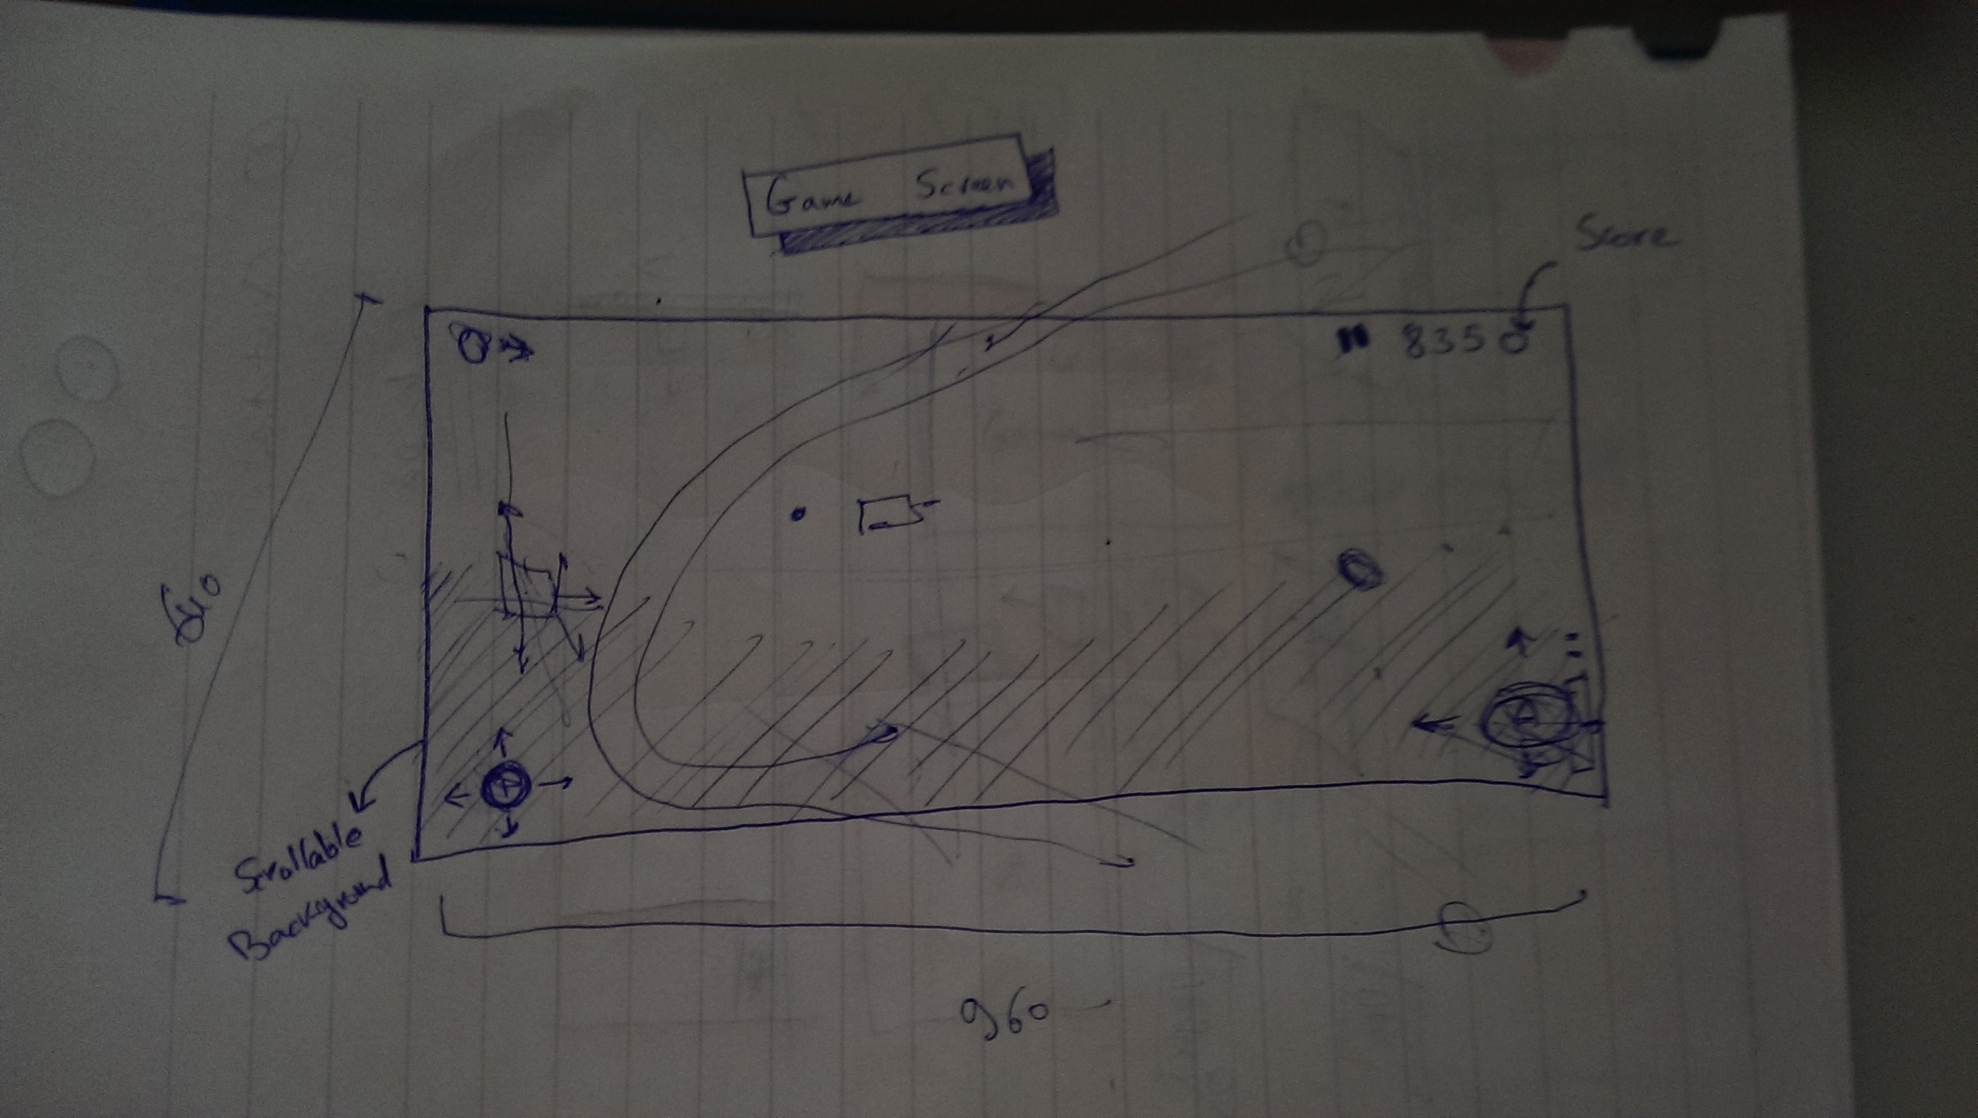 Game Screen
Score
8350
640
Scrollable
Background
960